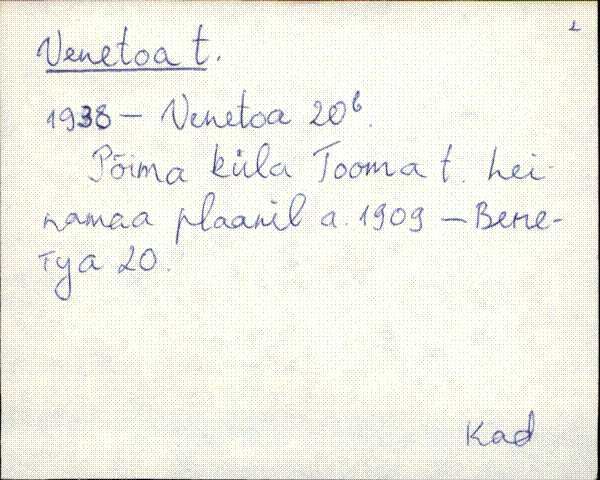 2
Venetoa t.
1938 – Venetoa 20ᵇ.
Põima küla Tooma t. hei-
namaa plaanil a. 1909 – Вене-
туа 20.
Kad